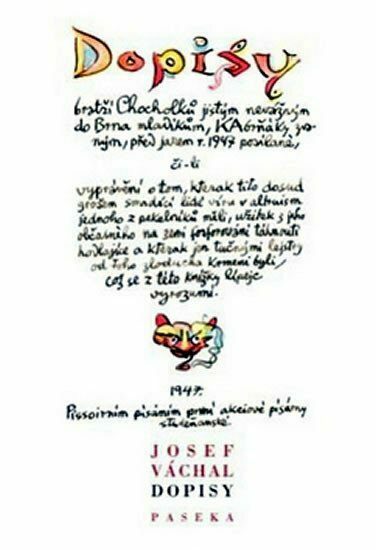 Dopisy
bratří Chocholků jistým nevážným
do Brna mladíkům, KAbrňáky zva-
ným, před jarem r. 1947 posílané,
či-li
vyprávění o tom, kterak tito dosud
grošem smradící lidé víru v altruism
jednoho z pekelníků měli, užitek z jeho
občasného na zemi forfování táhnouti
hodlajíce a kterak jen tučnými lejstry
od toho zloducha krmeni byli,
což se z této knížky lépeje
vyrozumí.
1947.
Pissoirním písáním první akciové písárny
studeňanské
JOSEF
VÁCHAL
DOPISY
PASEKA